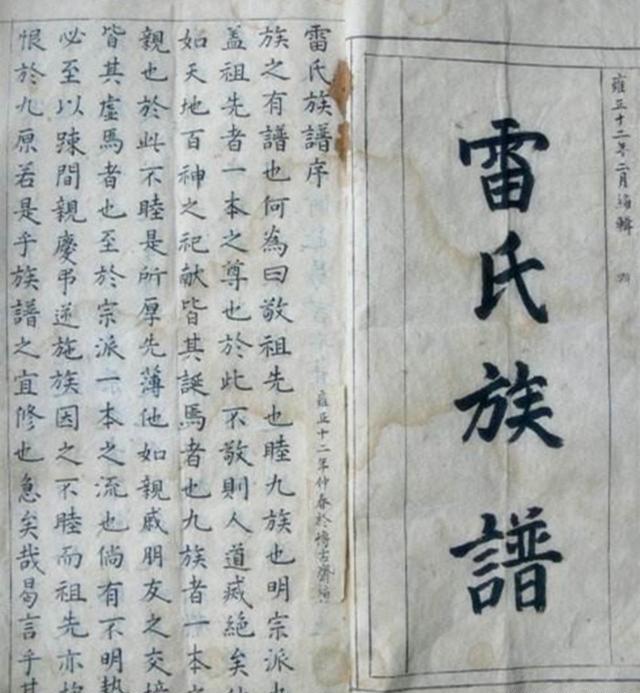 雍正十二年二月編輯
雷氏族譜
雷氏族譜序
雍正十二年仲春於
族之有譜也何為曰敬祖先也睦九族也明宗派也
蓋祖先者一本之尊也於此不敬則人道滅絕矣
如天地百神之祀献皆其誕焉者也九族者一本
親也於此不睦是所厚先薄他如親戚朋友之交
皆其虛焉者也至於宗派一本之流也倘有不明
必至以踈間親慶弔逆施族因之不睦而祖先亦
恨於九原若是乎族譜之宜修也急矣哉曷言乎其